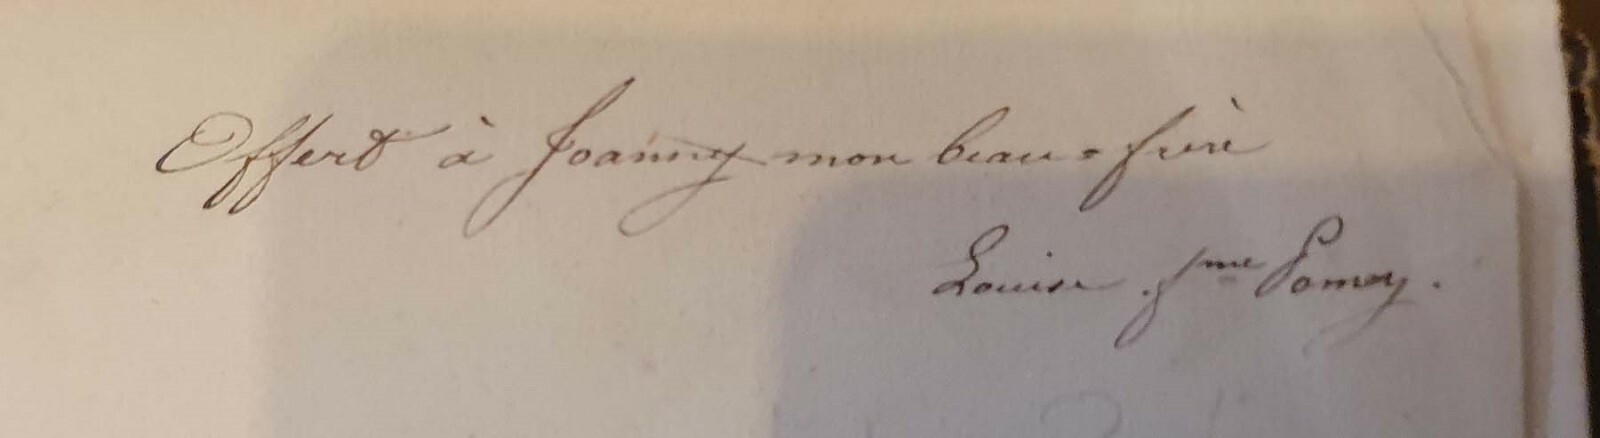 Offert à Joanny mon beau-frère
Louise fme Pomey.